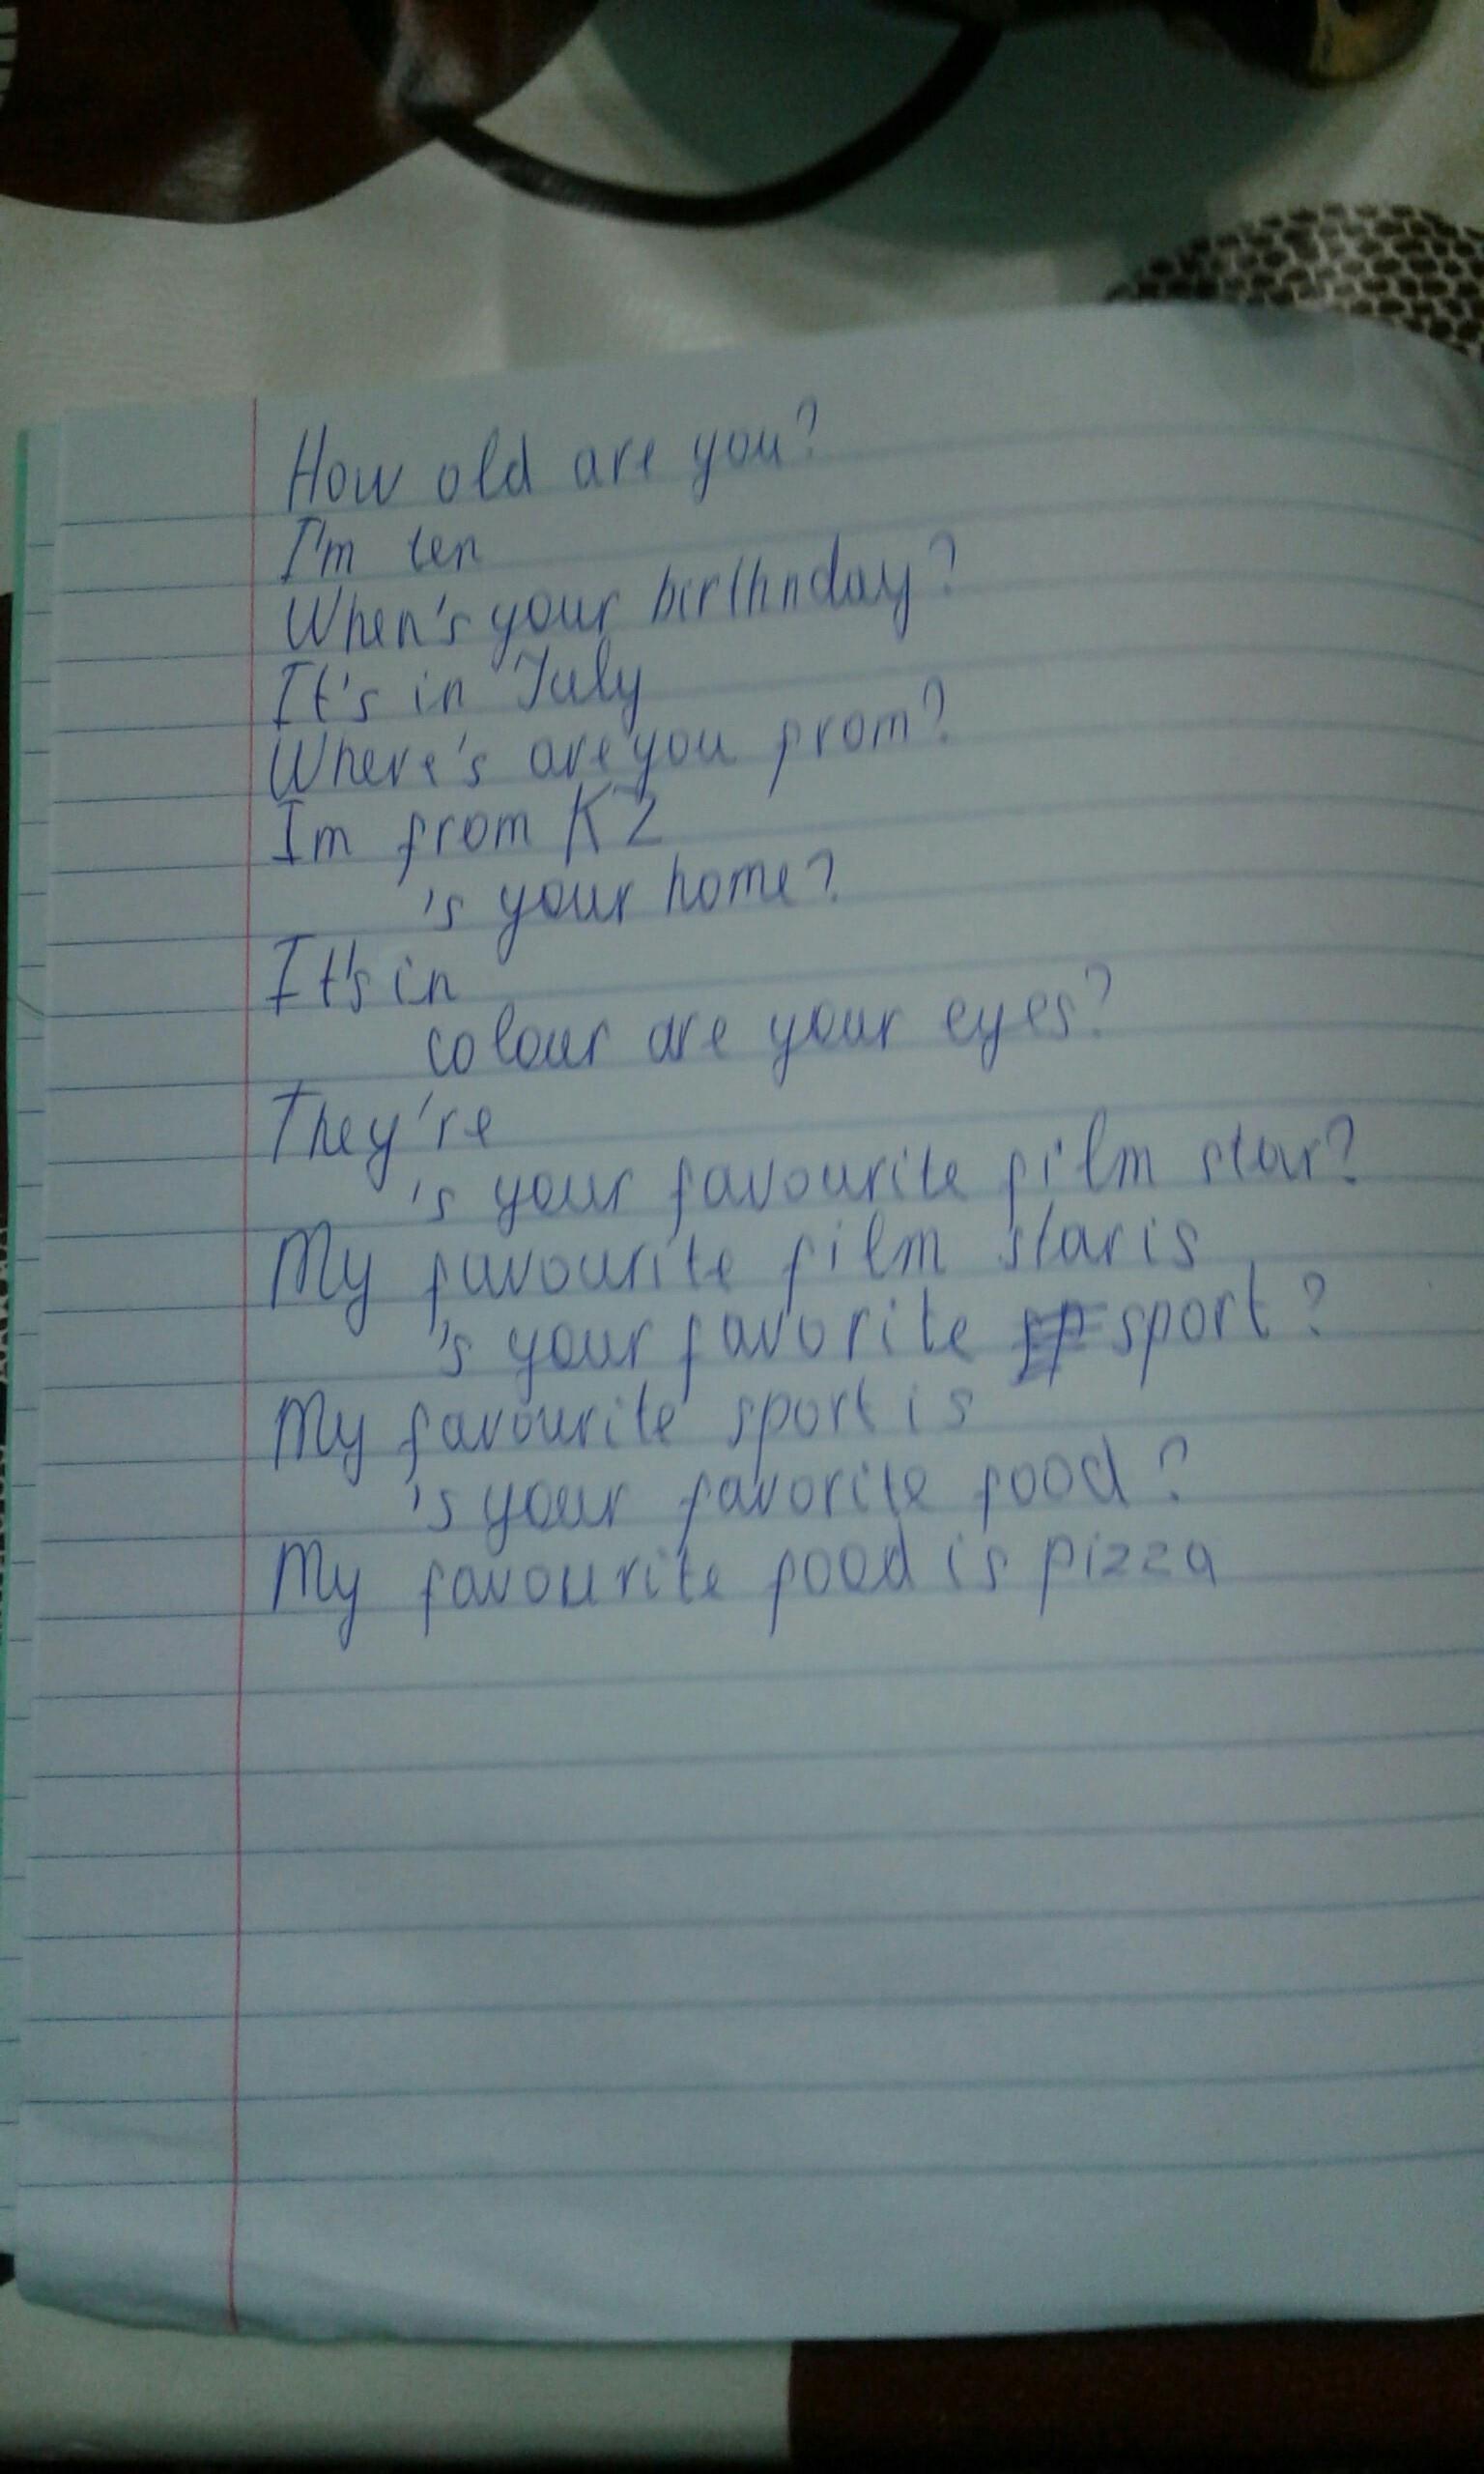 How old are you?
I'm ten
When's your birthnday?
It's in July
Where's are you from?
Im from KZ
's your home?
It's in
colour are your eyes?
They're
's your favourite film star?
My favourite film star is
's your favorite sport?
My favourite sport is
's your favorite food?
My favourite food is pizza